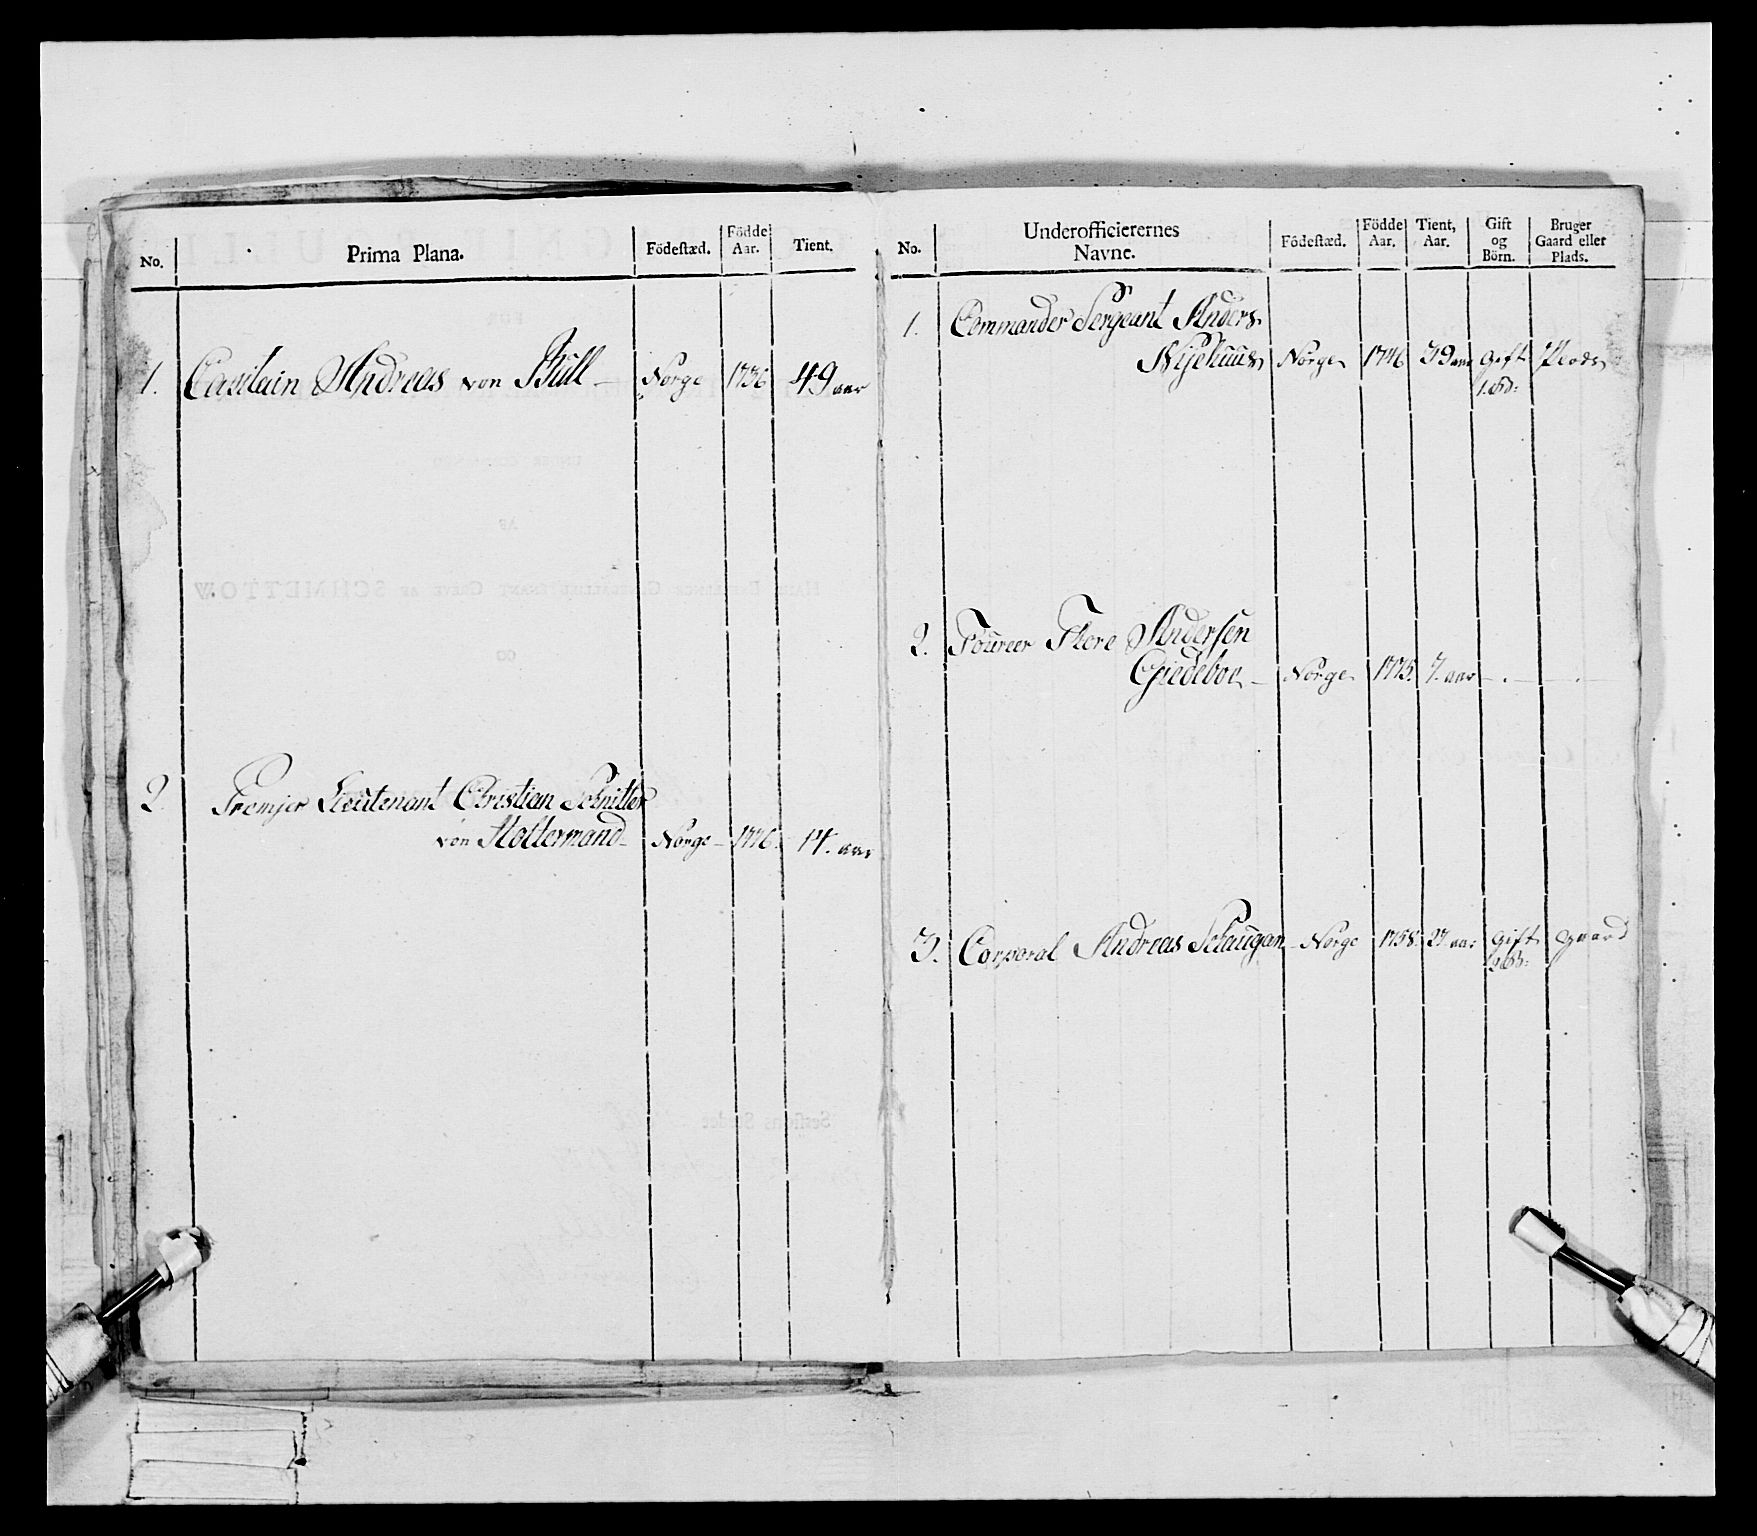 No.
Prima Plana.
Födestæd.
Födde Aar.
Tient.
1. Capitain Andreas von Büll – Norge 1736 49 aar
2. Premjer Lieutenant Christian Schnitler
von Krogh Norge – 1776. 14. aar
No.
Underofficierernes
Navne.
Födestæd.
Födde Aar.
Tient, Aar.
Gift og Börn.
Bruger Gaard eller Plads.
1. Commander Sergeant Anders
Nyehuus Norge 1746 39 aar Gift Plads
1. B:
2. Foureer Thore Andersen
Giedeboe – Norge 1775. 7. aar – . – .
3. Corporal Andreas Schaugan – Norge 1758. 27 aar Gift gaard
2 B: